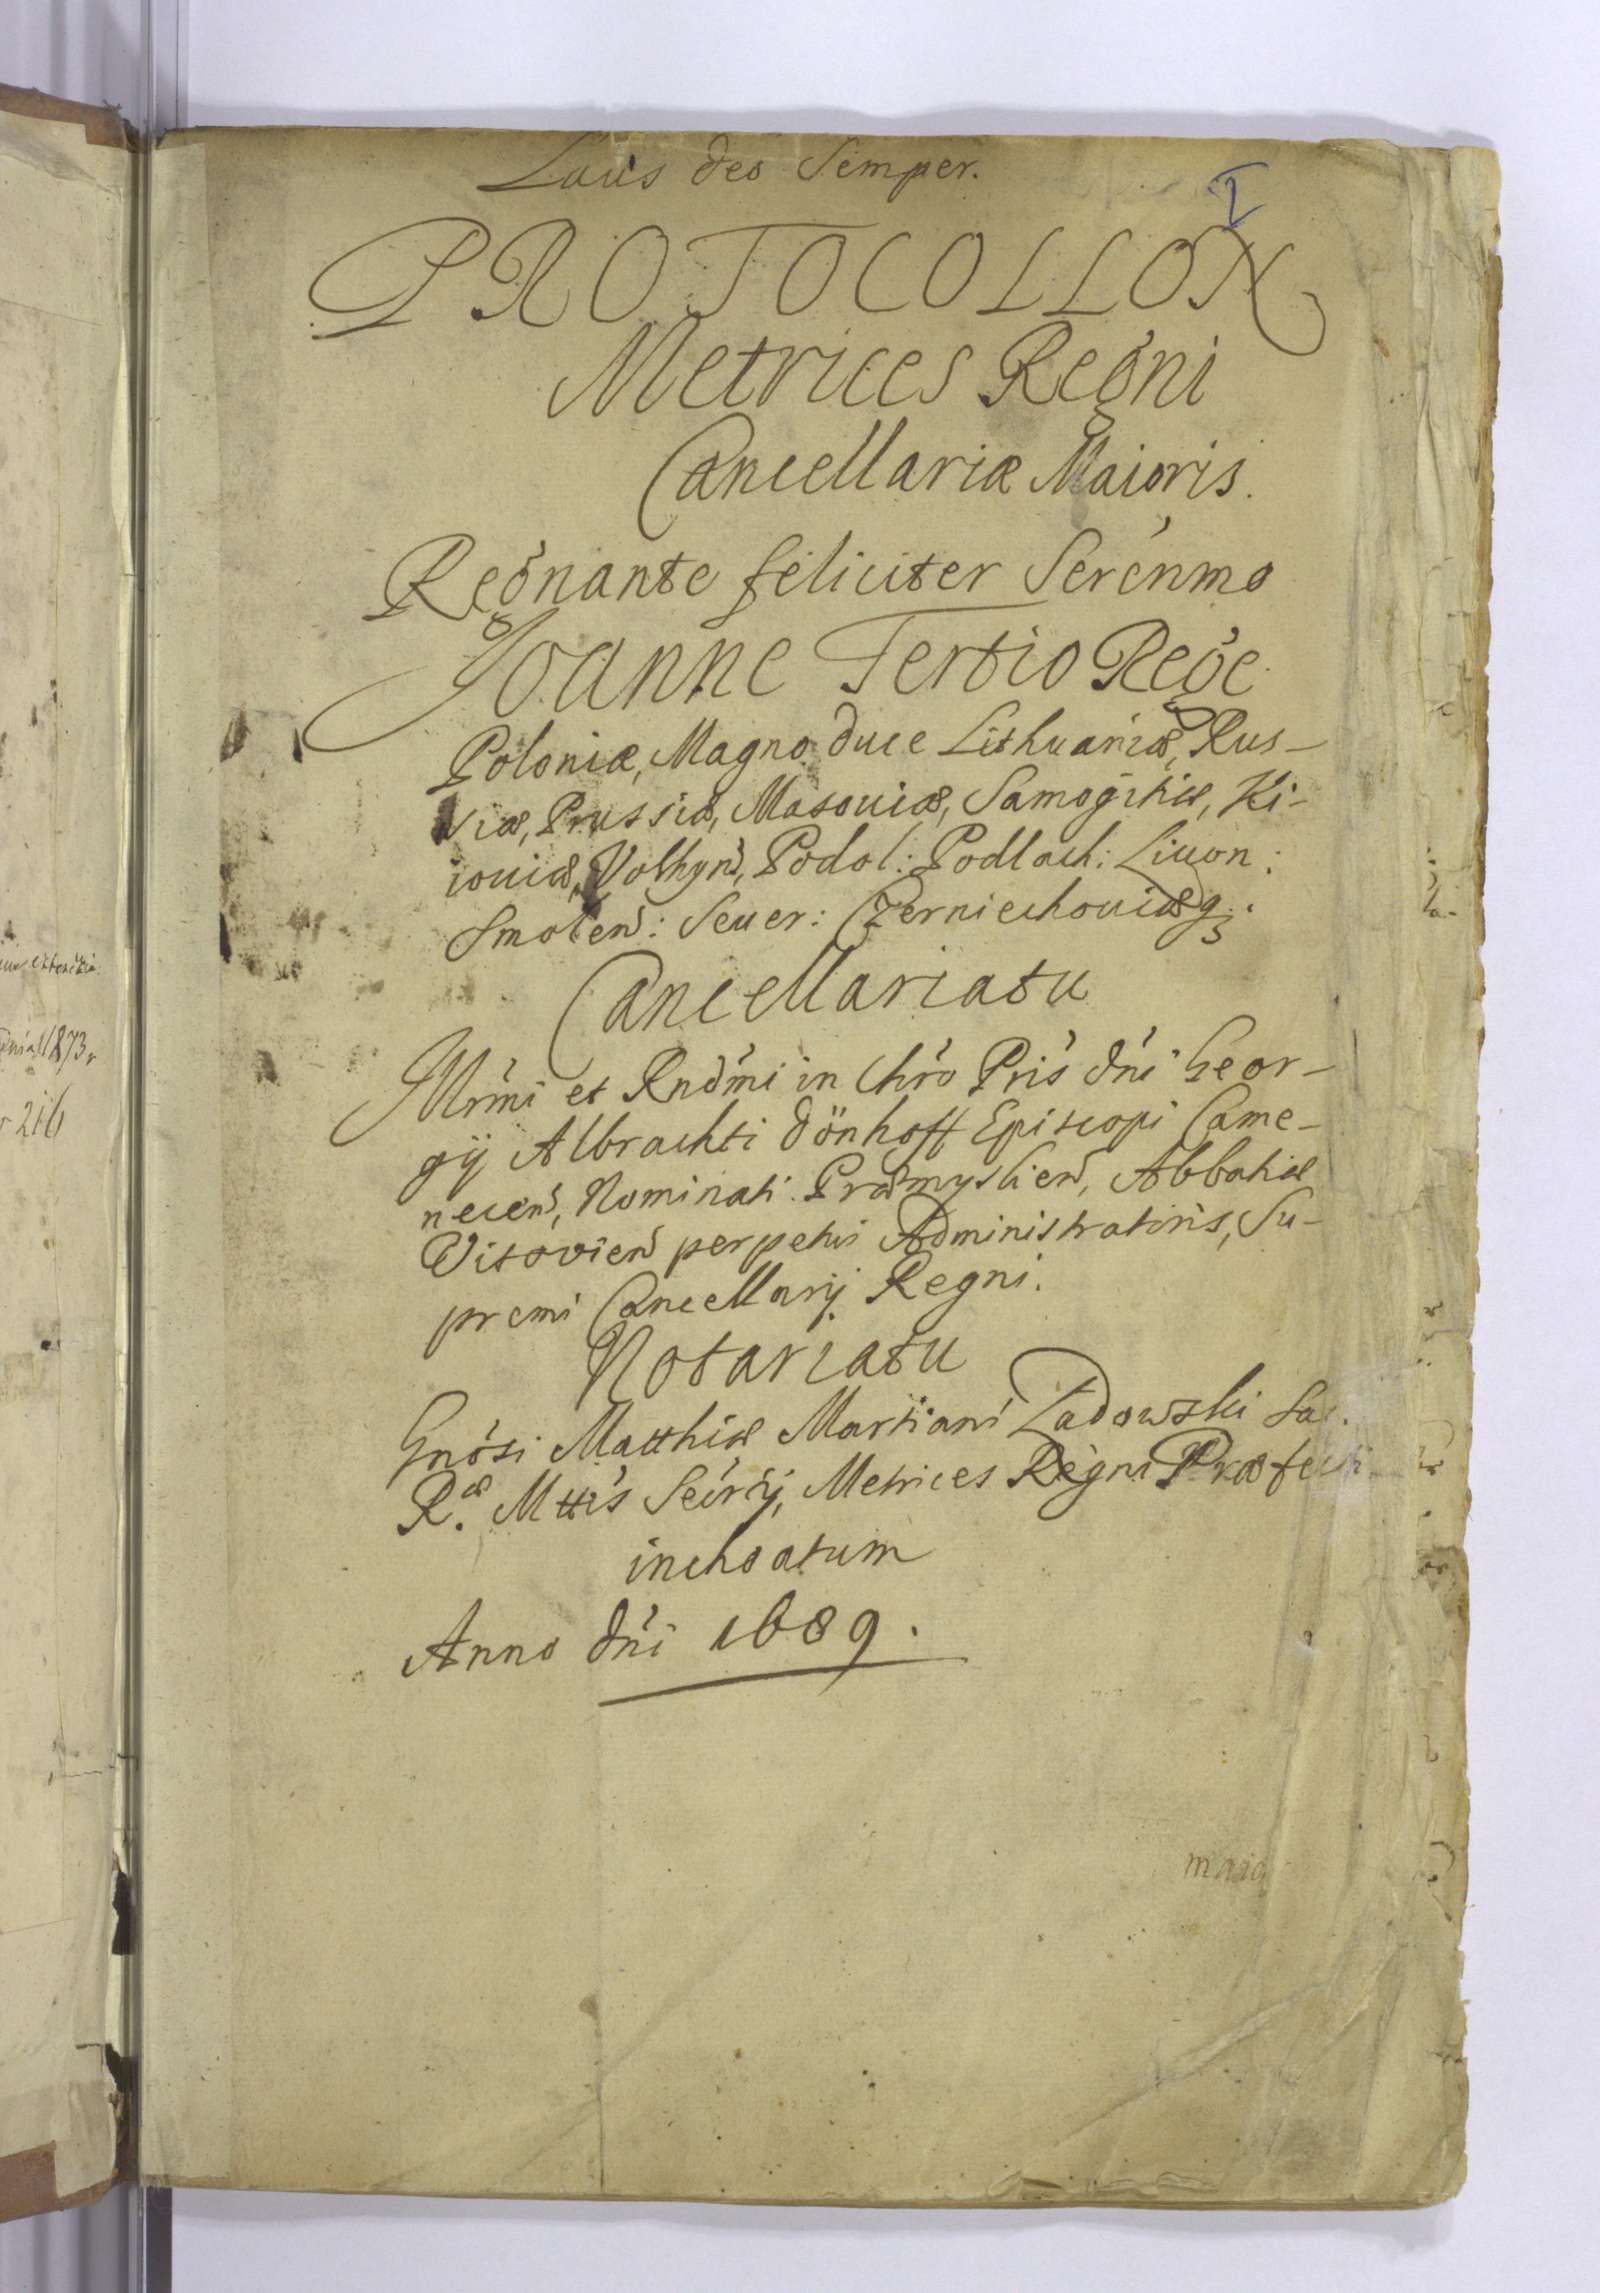 Laus deo Semper.
I
PROTOCOLLON
Metrices Regni
Cancellariæ Maioris.
Regnante feliciter Serenmo
Joanne Tertio Rege
Poloniæ, Magno duce Lithuaniæ, Rus-
siæ, Prussiæ, Masouiæ, Samogitiæ, Ki-
iouiæ, Volhyn, Podol: Podlach: Liuon:
Smolen: Seuer: Czerniechouiæq;
Cancellariatu
Illrmi et Rndmi in Chro Pris dni Geor-
gij Albrachti Dönhoff Episcopi Came-
necen, Nominati Præmyslien, Abbatiæ
Vitovien perpetui Administratoris, Su-
premi Cancellarij Regni.
Notariatu
Gnosi Matthiæ Martiani Ladowski Sac.
Ræ Mttis Secrij, Metrices Regni Præfecti
inchoatum
Anno dni 1689.
1873
216